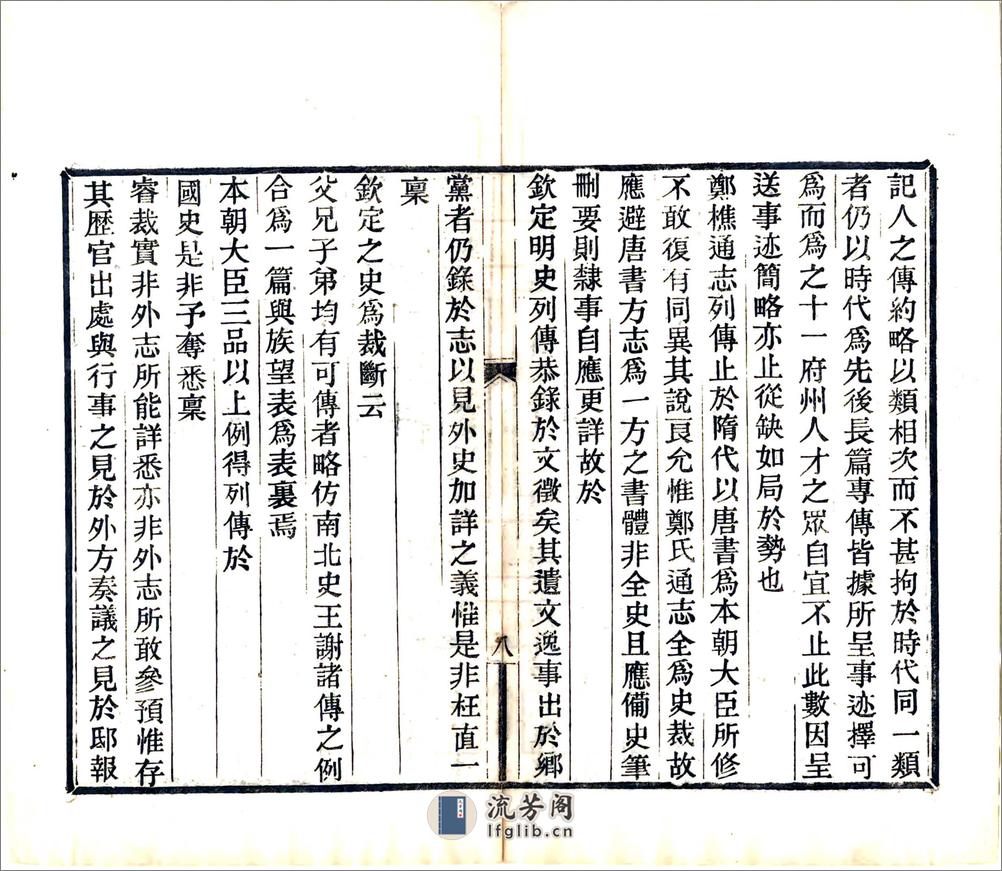 記人之傳約略以類相次而不甚拘於時代同一類
者仍以時代爲先後長篇專傳皆據所呈事迹擇可
爲而爲之十一府州人才之眾自宜不止此數因呈
送事迹簡略亦止從缺如局於勢也
鄭樵通志列傳止於隋代以唐書爲本朝大臣所修
不敢復有同異其說良允惟鄭氏通志全爲史裁故
應避唐書方志爲一方之書體非全史且應備史筆
刪要則隸事自應更詳故於
欽定明史列傳恭錄於文徵矣其遺文逸事出於鄉
八
黨者仍錄於志以見外史加詳之義惟是非枉直一
稟
欽定之史爲裁斷云
父兄子弟均有可傳者略仿南北史王謝諸傳之例
合爲一篇與族望表爲表裏焉
本朝大臣三品以上例得列傳於
國史是非予奪悉稟
睿裁實非外志所能詳悉亦非外志所敢參預惟存
其歷官出處與行事之見於外方奏議之見於邸報
流芳阁
lfglib.cn